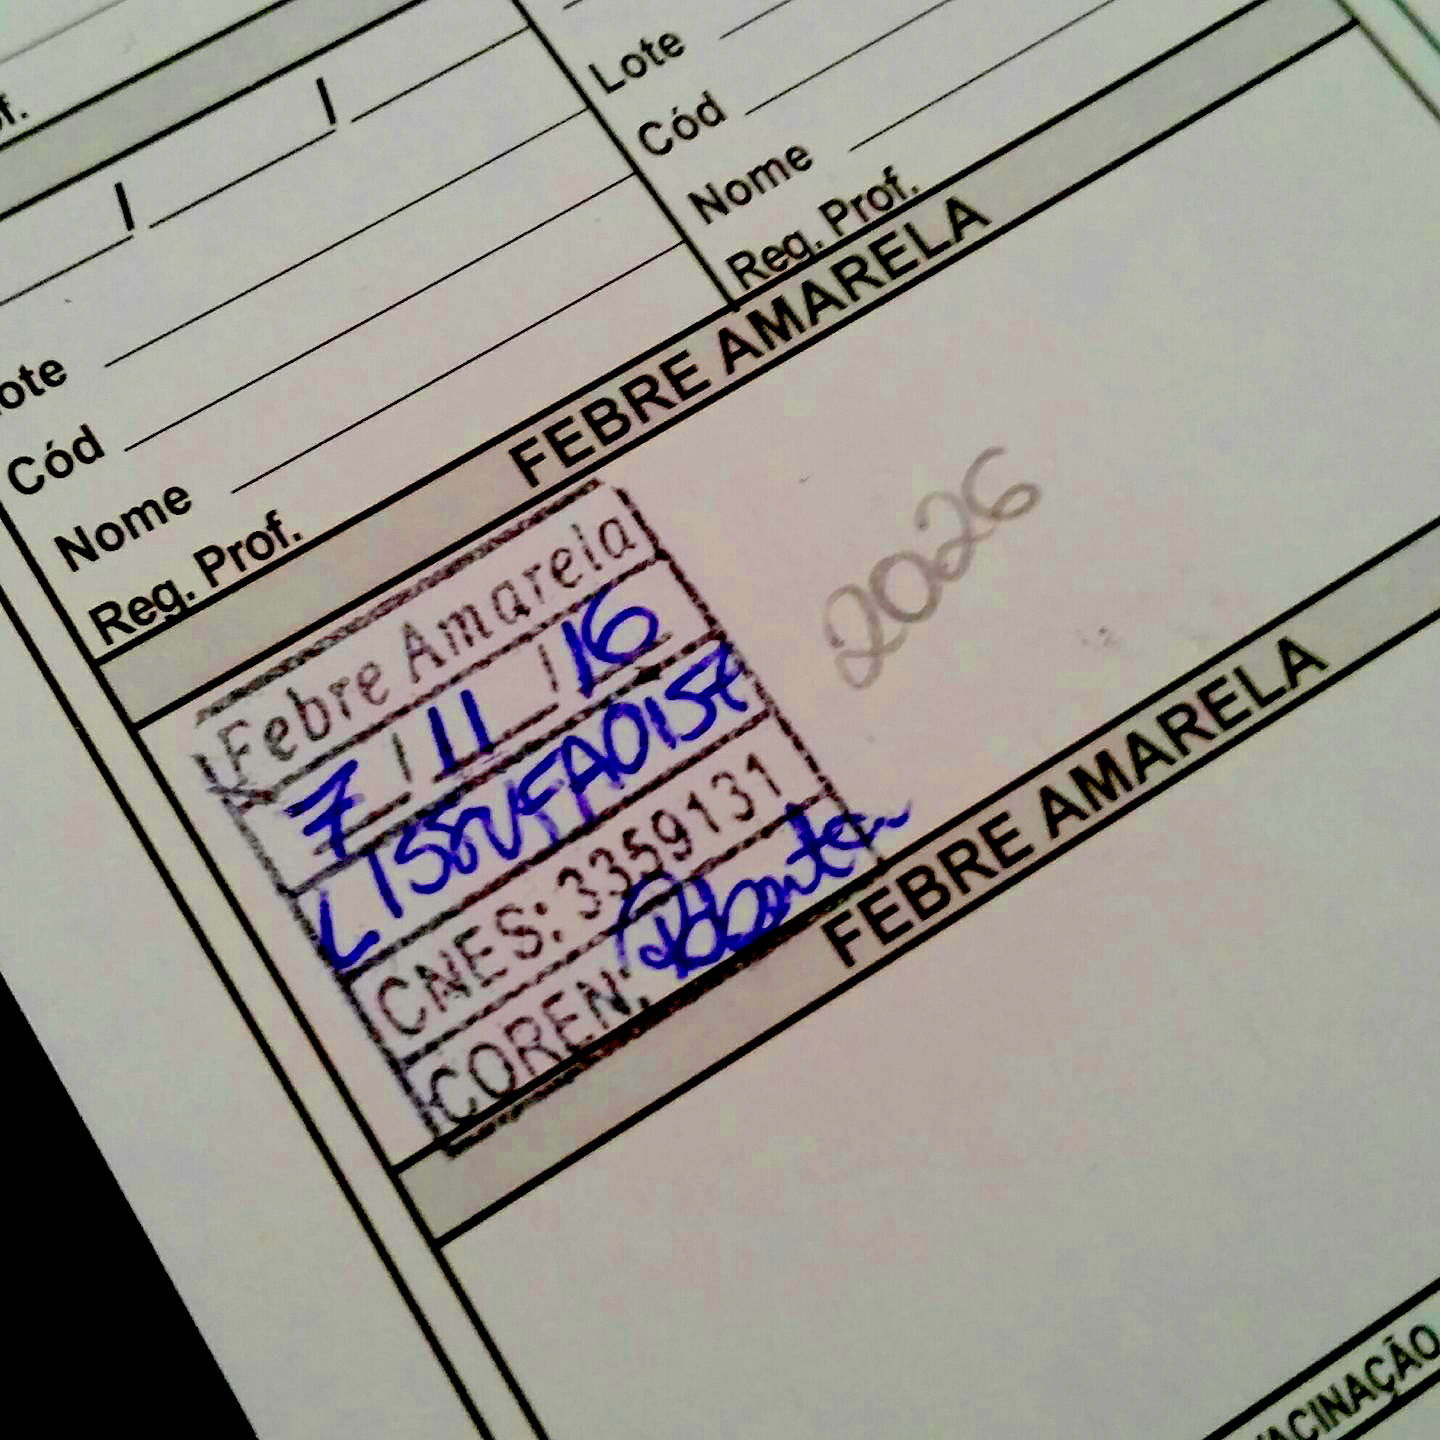 / /
Lote
Cód
Nome
Reg. Prof.
Cód
Nome
Reg. Prof.
FEBRE AMARELA
Febre Amarela
7/11/16
L 158VFA015Z
CNES: 3359131
COREN:
2026
FEBRE AMARELA